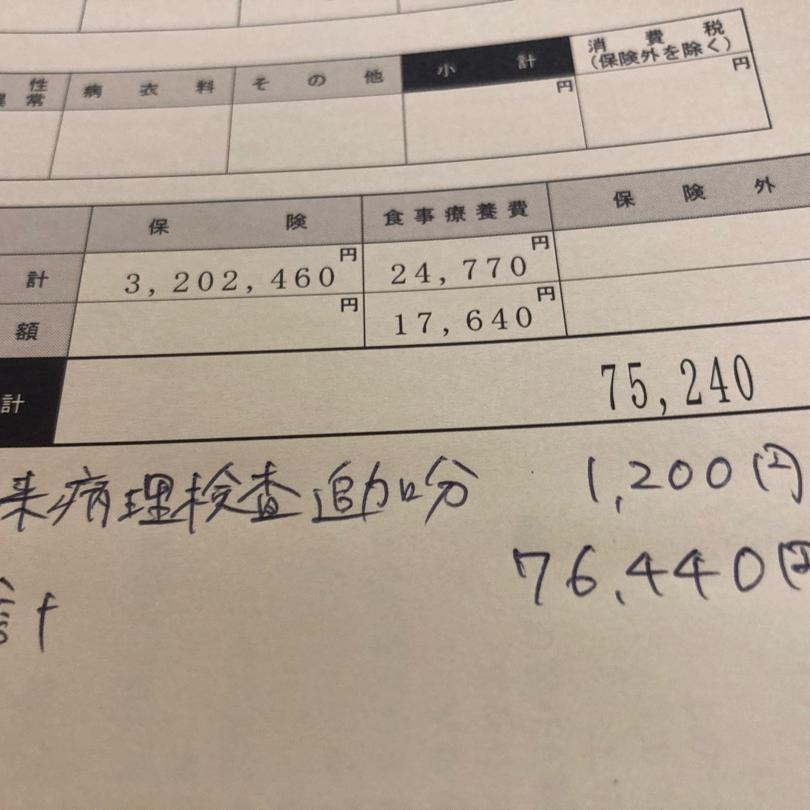 性 消費税
常 病衣料 その他 小計 (保険外を除く)
円 円
保険 食事療養費 保険外
計 3,202,460円 24,770円
額 円 17,640円
計 75,240
来病理検査追加分 1,200(2)
計 76,440(2